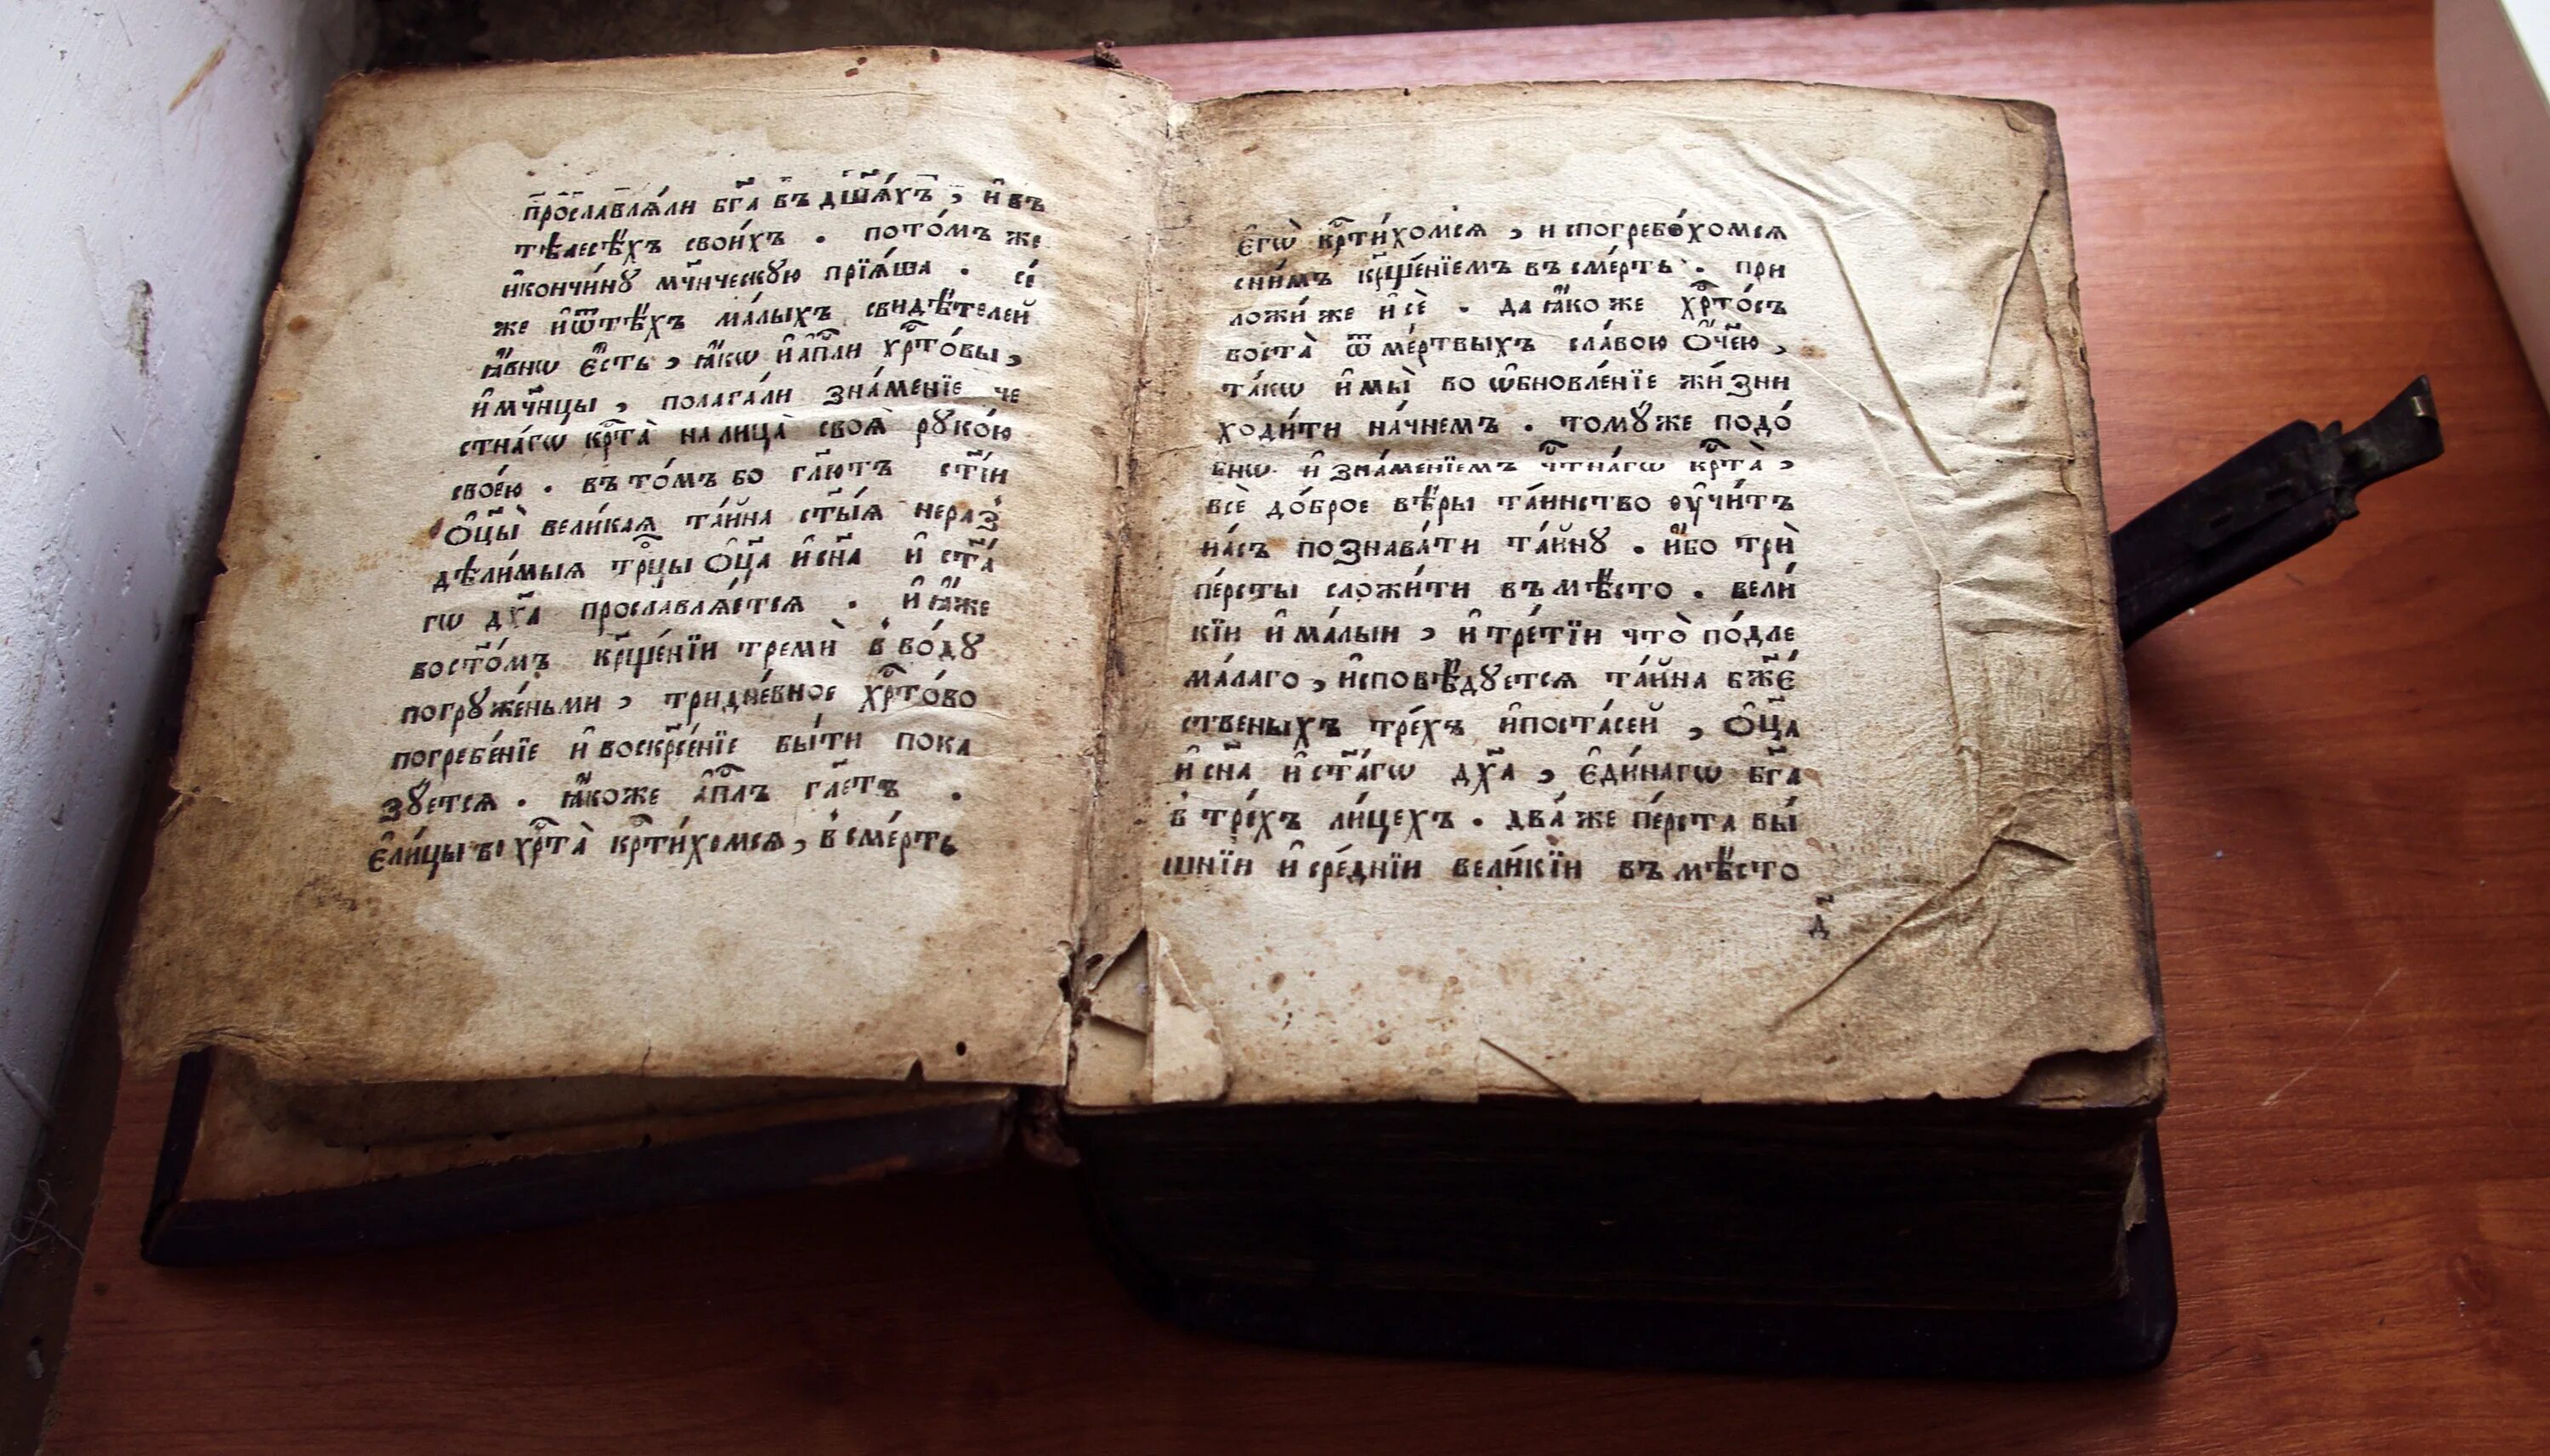 прⷭ҇ославлѧ́ли бг҃а въ дш҃а́хъ , и҆ въ
тѣлесѣ́хъ свои́хъ . пото́мъ же
и҆кончи́нꙋ мч҃ническꙋю прїѧ́ша . се́
же и҆ѿтѣ́хъ ма́лыхъ свидѣ́телей
ꙗ҆́внѡ є҆́сть , ꙗ҆́кѡ и҆ а҆пⷭ҇ли хрⷭ҇то́вы ,
и҆ мч҃нцы , полага́ли зна́менїе че
стна́гѡ крⷭ҇та̀ на лица̀ своѧ̀ рꙋко́ю
свое́ю . въ то́мъ бо гл҃ютъ ст҃і́и
Ѻ҆ц҃ы̀ вели́каѧ та́йна ст҃ы́ѧ нераз̾
дѣли́мыѧ трⷪ҇цы Ѻ҆ц҃а и҆ сн҃а и҆ ст҃а́
гѡ дх҃а прославлѧ́етсѧ . и҆ ꙗ҆́же
восто́мъ крⷭ҇ще́нїи тремѝ в̾ во́дꙋ
погрꙋже́ньми , тридне́вное хрⷭ҇то́во
погребе́нїе и҆ воскрⷭ҇е́нїе бы́ти пока
зꙋ́етсѧ . ꙗ҆́коже а҆пⷭ҇лъ гл҃етъ .
Є҆ли́цы во хрⷭ҇та̀ крⷭ҇ти́хомсѧ , в̾ сме́рть
є҆гѡ̀ крⷭ҇ти́хомсѧ , и спогребо́хомсѧ
сни́мъ крⷭ҇ще́нїемъ въ сме́рть . при
ложи́ же и҆ сѐ . да ꙗ҆́ко же хрⷭ҇то́съ
воста̀ ѿ ме́ртвыхъ сла́вою Ѻ҆́ч҃ею ,
та́кѡ и҆ мы̀ во ѡ҆бновле́нїе жи́зни
ходи́ти на́чнемъ . томꙋ́же подо́
бнѡ и҆ зна́менїемъ чⷭ҇тна́гѡ крⷭ҇та̀ ,
всѐ до́брое вѣ́ры та́инство ѹ҆чи́тъ
на́съ познава́ти та́йнꙋ . и҆́бо трѝ
пе́рсты сложи́ти въ мѣ́сто . вели́
кїи и҆ ма́лыи , и҆ тре́тїи что̀ по́дле
ма́лаго , и҆сповѣ́дꙋетсѧ та́йна бж҃е́
ственыхъ тре́хъ и҆поста́сей , Ѻ҆ц҃а
и҆ сн҃а и҆ ст҃а́гѡ дх҃а , є҆ди́нагѡ бг҃а
в̾ тре́хъ ли́цехъ . два́ же пе́рста вы́
шнїи и҆ сре́днїи вели́кїи въ мѣ́сто
д҃